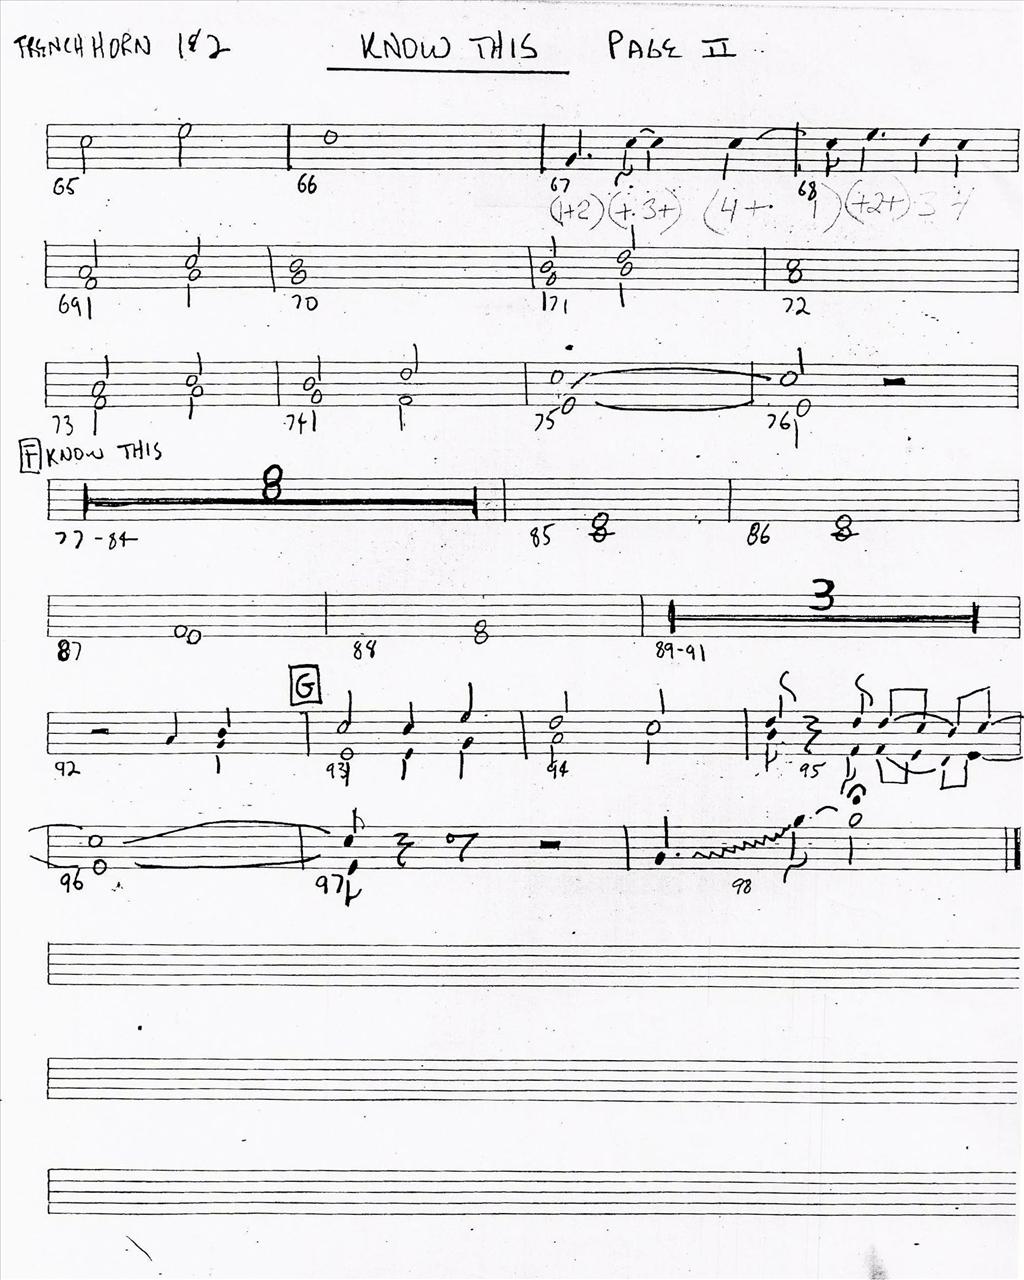 FRENCH HORN 1&2 KNOW THIS PAGE II
65 66 67 68
(1+2) (+ 3+) (4+ 1) (+2+) 3 4
69 70 71 72
73 74 75 76
F KNOW THIS
8
77-84 85 86
3
87 88 89-91
G
92 93 94 95
96 97 98